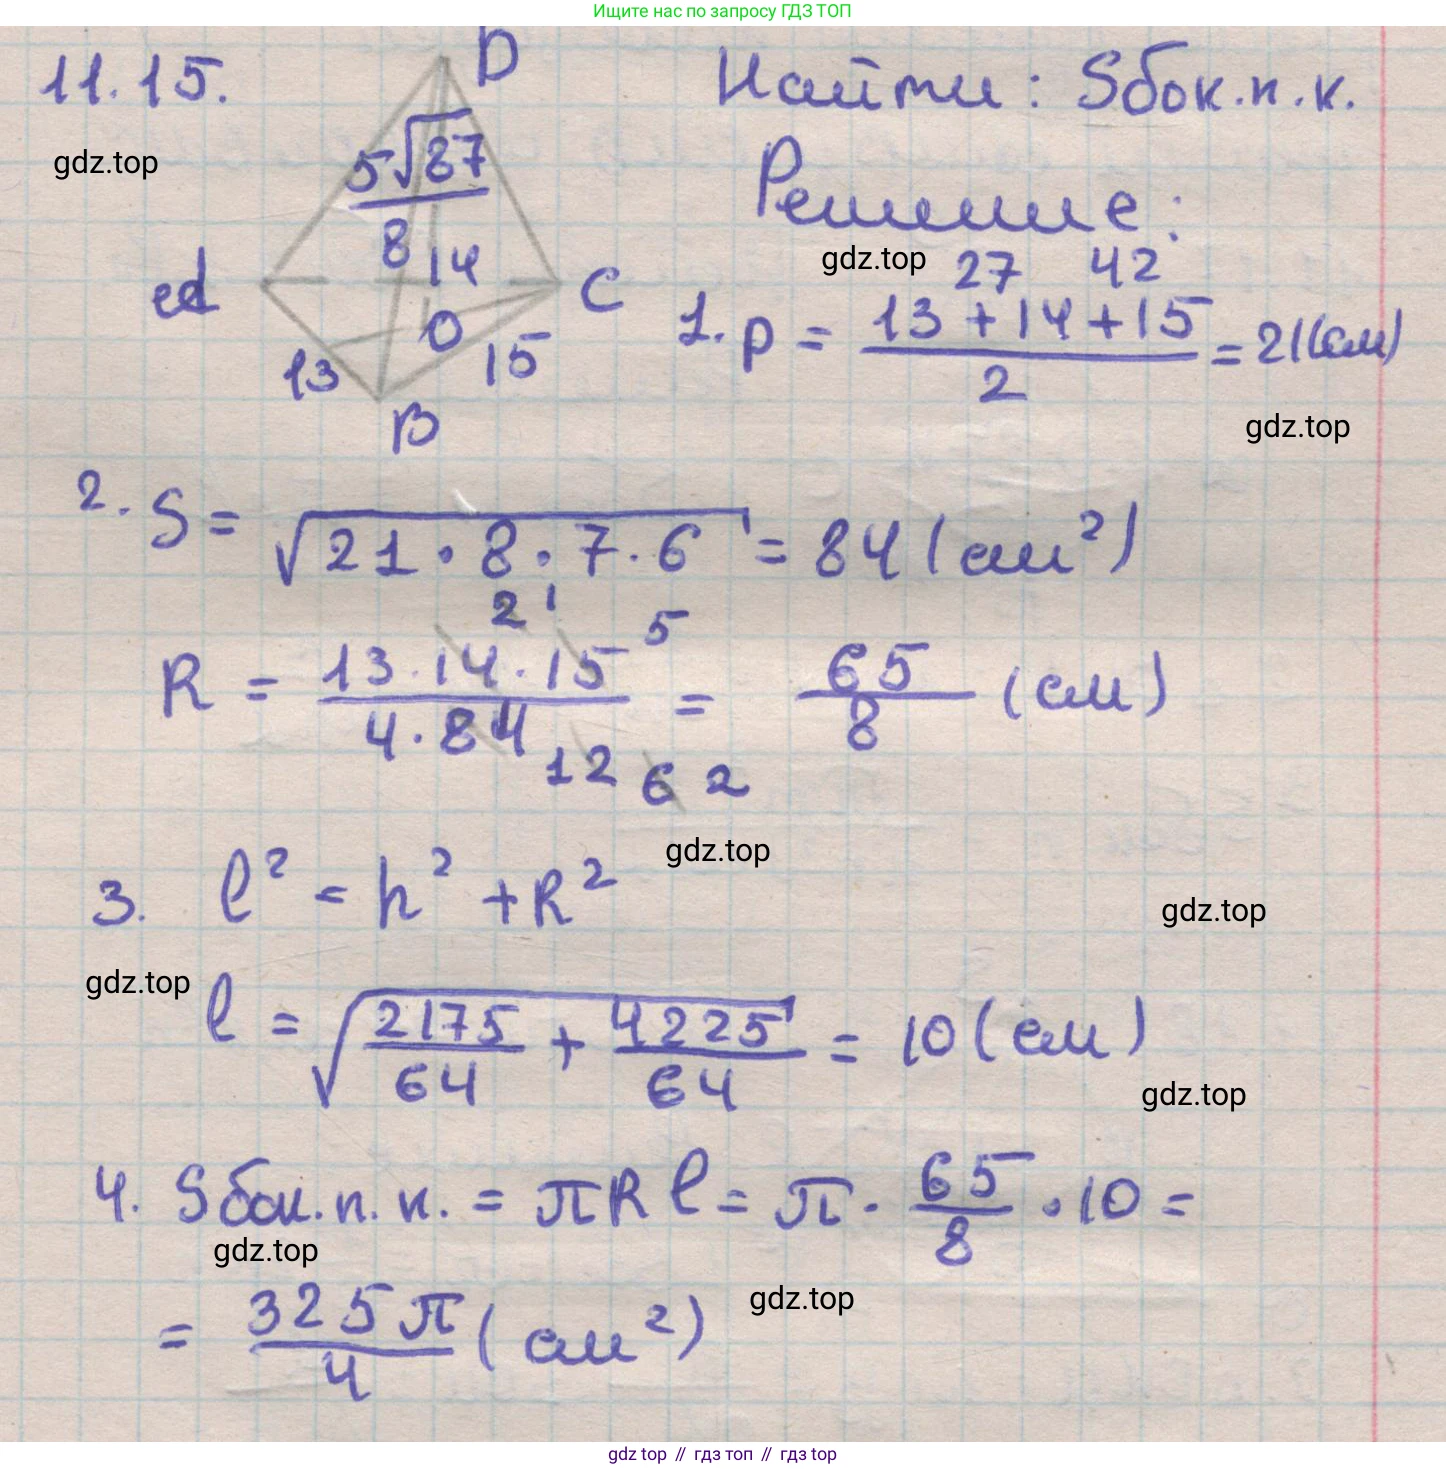 Ищите нас по запросу ГДЗ ТОП
11.15.
D
Найти: Sбок.п.к.
gdz.top
5√87/8
Решение:
gdz.top
27 42
14
A
C
O
1. p = (13+14+15)/2 = 21(см)
13
15
B
gdz.top
2. S = √(21·8·7·6) = 84(см²)
2 1 5
R = (13·14·15)/(4·84) = 65/8 (см)
12 6 2
gdz.top
3. l² = h² + R²
gdz.top
gdz.top
l = √(2175/64 + 4225/64) = 10(см)
gdz.top
4. Sбок.п.к. = πRl = π · 65/8 · 10 =
gdz.top
= 325π/4 (см²)
gdz.top
gdz top // гдз топ // гдз top